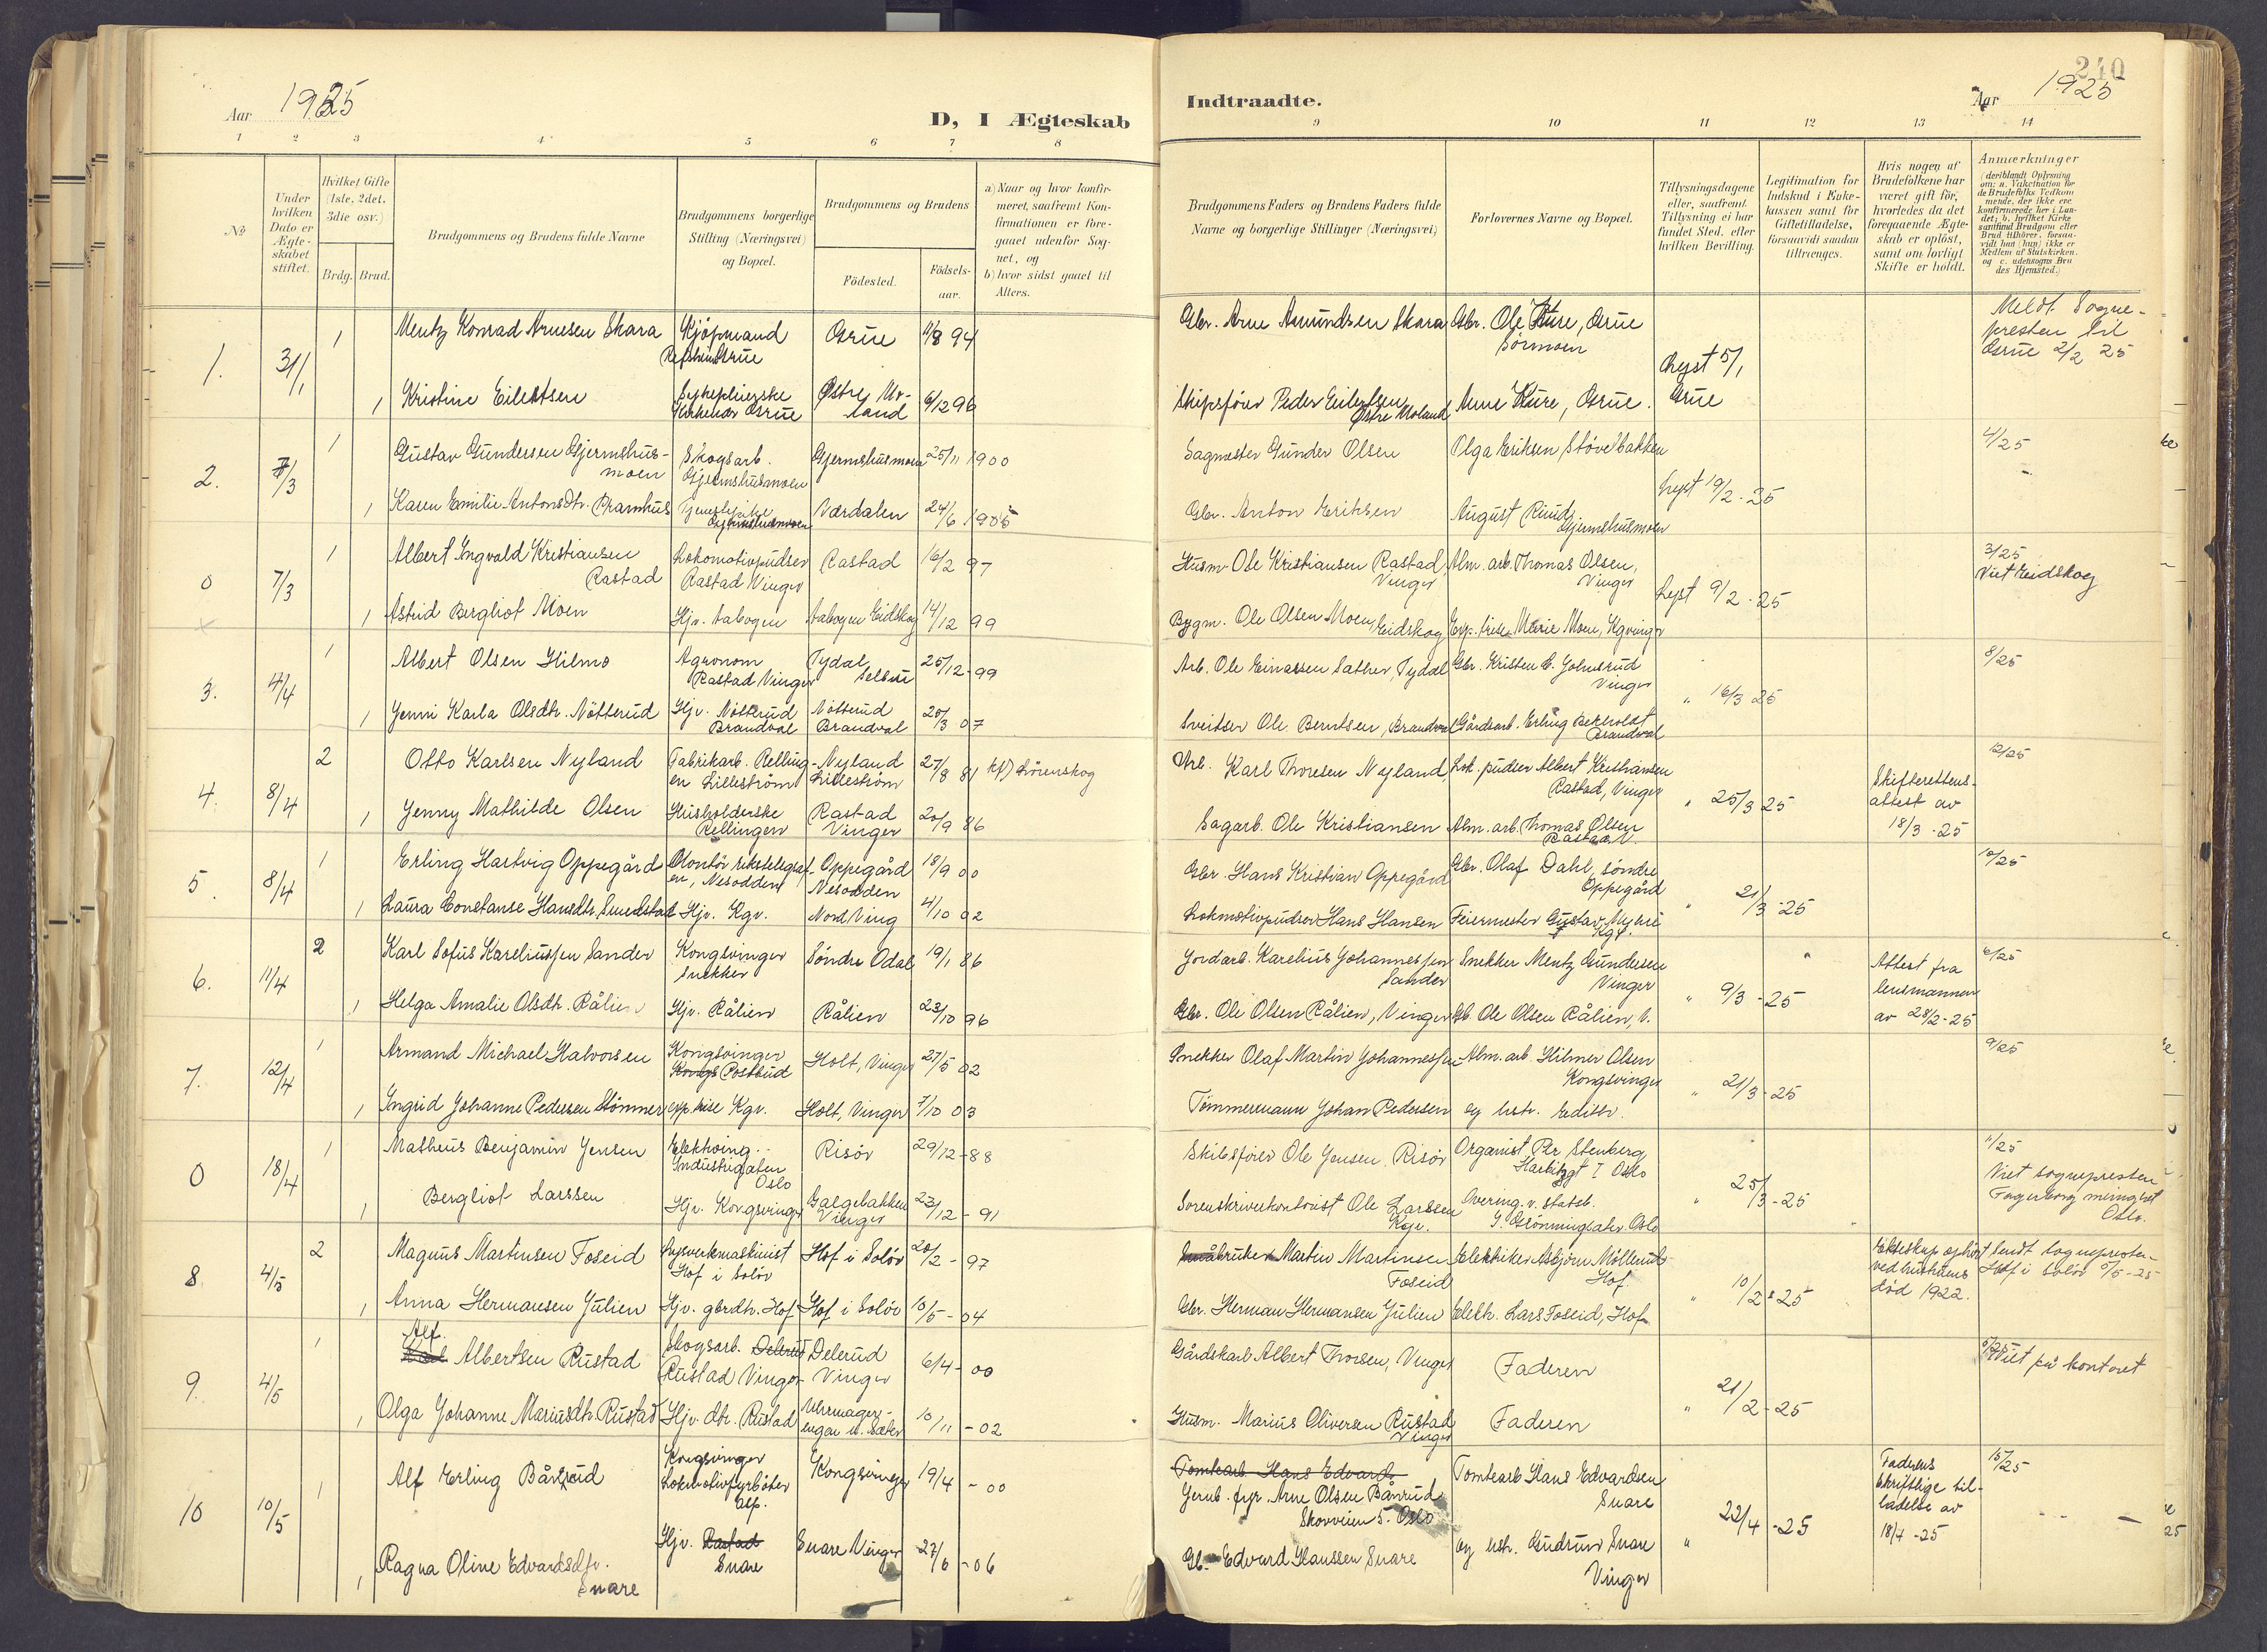 Aar 1925
D, I Ægteskab
1 2 3 4 5 6 7 8
№
Under hvilken Dato er Ægteskabet stiftet.
Hvilket Gifte (1ste, 2det, 3die osv.)
Brdg. Brud.
Brudgommens og Brudens fulde Navne
Brudgommens borgerlige Stilling (Næringsvei) og Bopæl.
Brudgommens og Brudens
Födested.
Födselsaar.
a) Naar og hvor konfirmeret, saafremt Konfirmationen er foregaaet udenfor Sognet, og
b) hvor sidst gaaet til Alters.
1. 31/1 1 Mentz Konrad Arnesen Skara Kjøpmand Grue 11/8 94
1 Kristine Eilertsen Grue 6/12 96
2. 7/3 1 Gustav Gundersen Gjermshusmoen Skogsarb. Gjermshusmoen Gjermshusmoen 25/11 1900
1 Karen Emilie Antonsdtr. Pramhus Gjermshusmoen Værdalen 24/6 1905
0 7/3 1 Albert Ingvald Kristiansen Rastad Lokomotivpudser Rastad Vinger Rastad 16/2 97
1 Astrid Bergliot Moen Hjv. Aabogen Aabogen Eidskog 14/12 99
3. 4/4 1 Albert Olsen Hilmo Agronom Rastad Vinger Tydal Selbu 25/12-99
1 Jenni Karla Olsdtr. Nötterud Hjv. Nötterud Brandval Nötterud Brandval 20/3 07
4. 8/4 2 Otto Karlsen Nyland Fabrikarb. Rellingen Lilleström Nyland Lilleström 27/8 81 Lörenskog
1 Jenny Mathilde Olsen Husholderske Rellingen Rastad Vinger 20/9 86
5. 8/4 1 Erling Hartvig Oppegård Nesodden Oppegård Nesodden 18/9 00
1 Laura Constanse Hansdtr. Smedstad Hjv. Kgv. Nord Ving 4/10 02
6. 11/4 2 Karl Sofus Kareliussen Sander Kongsvinger Snekker Söndre Odal 19/1 86
1 Helga Amalie Olsdtr. Rålien Hjv. Rålien Rålien 23/10 96
7. 12/4 1 Armand Michael Halvorsen Kongsvinger Postbud Holt, Vinger 27/5 02
1 Ingrid Johanne Pedersen Stömner exp.trise Kgv. Holt, Vinger 7/10 03
0 18/4 1 Matheus Benjamin Jensen Industrigaten Oslo Risör 29/12-88
1 Bergliot Larssen Hjv. Kongsvinger Galgebakken Vinger 23/12-91
8. 4/5 2 Magnus Martinsen Foseid Lysverkmaskinist Hof i Solör Hof i Solör 20/2-97
1 Anna Hermansen Julien Hjv. gbrdtr. Hof Hof i Solör 10/5-04
9. 4/5 1 Alf Albertsen Rustad Skogsarb. Delerud Rustad Vinger Delerud Vinger 6/4-00
1 Olga Johanne Mariusdtr. Rustad Hjv. dtr. Rustad 10/11-02
10 10/5 1 Alf Erling Bånrud Kongsvinger Lokomotivfyrböter asp. Kongsvinger 19/4-00
1 Ragna Oline Edvardsdtr. Snare Hjv. Rastad Snare Snare Vinger 27/6-06
240
Indtraadte.
Aar 1925
9 10 11 12 13 14
Brudgommens Faders og Brudens Faders fulde Navne og borgerlige Stillinger (Næringsvei)
Forlovernes Navne og Bopæl.
Tillysningsdagene eller, saafremt Tillysning ei har fundet Sted, efter hvilken Bevilling.
Legitimation for Indskud i Enkekassen samt for Giftetilladelse, forsaavidt saadan tiltrænges.
Hvis nogen af Brudefolkene har været gift för, hvorledes da det foregaaende Ægteskab er oplöst, samt om lovligt Skifte er holdt.
Anmærkninger (deriblandt Oplysning om: a. Vakcination for de Brudefolks Vedkommende, der ikke ere konfirmerede her i Landet; b. hvilket Kirkesamfund Brudgom eller Brud tilhörer, forsaavidt han (hun) ikke er Medlem af Statskirken, og c. udensogns Brudes Hjemsted.)
Gbr. Arne Amundsen Skara Gbr. Ole Kure, Grue Sörmoen Lyst 5/1 Grue Meldt Sognepresten til Grue 2/2 25
Skipsförer Peder Eilertsen Östre Moland Arne Kure, Grue.
Sagmester Gunder Olsen Olga Eriksen Stövelbakken Lyst 19/2-25 4/25
Gbr. Anton Eriksen August Ruud Gjermshusmoen
Husm. Ole Kristiansen Rastad, Vinger Alm. arb. Thomas Olsen, Vinger Lyst 9/2-25 3/25 Viet Eidskog
Bygm. Ole Olsen Moen, Eidskog Exp.trise Marie Moen, Kgvinger
Arb. Ole Einarsen Sather, Tydal Gbr. Kristen C. Johnsrud Vinger " 16/3 25 8/25
Sveitser Ole Berntsen, Brandval Gårdsarb. Erling Berholdt Brandval
Arb. Karl Thoresen Nyland Lok. pudser Albert Kristiansen Rastad, Vinger " 25/3 25 Skifterettens attest av 18/3-25 12/25
Sagarb. Ole Kristiansen Alm. arb. Thomas Olsen Rastad V.
Gbr. Hans Kristian Oppegård Gbr. Olaf Dahl, söndre Oppegård " 21/3-25 10/25
Lokomotivpudser Hans Hansen Feiermester Gustav Kgv.
Jordarb. Karelius Johannessen Sander Snekker Mentz Gundersen Vinger " 9/3-25 Attest fra lensmannen av 28/2-25 6/25
Gbr. Ole Olsen Rålien, Vinger Gb. Ole Olsen Rålien, V.
Snekker Olaf Martin Johannessen Alm. arb. Hilmer Olsen Kongsvinger " 21/3-25 9/25
Tömmermann Johan Pedersen og hstr. Edith.
Skibsförer Ole Jensen Risör Organist Per Stenberg Oslo " 25/3-25 11/25 Viet sognepresten Fagerborg menighet Oslo.
Sorenskriverkontorist Ole Larssen Kgv. Overing. v. statsb. Oslo
Småbruker Martin Martinsen Foseid Elektriker Asbjörn Möllerud Hof. " 10/2-25 Ekteskap ophört ved hustruens död 1922. Sendt Sognepresten Hof i Solör 5/5-25
Gbr. Herman Hermansen Julien Elektr. Lars Foseid, Hof
Gårdskarl Albert Thorsen, Vinger Faderen " 21/2-25 5/25 Viet på kontoret
Husm. Marius Oliversen Rustad Vinger Faderen
Tomtearb. Hans Edvards Jernb. fyr. Arne Olsen Bånrud Skovveien 5. Oslo Tomtearb Hans Edvardsen Snare " 22/4-25 Faderens skriftlige tilladelse av 18/4-25 15/25
Gb. Edvard Hanssen Snare og hstr. Gudrun Snare Vinger